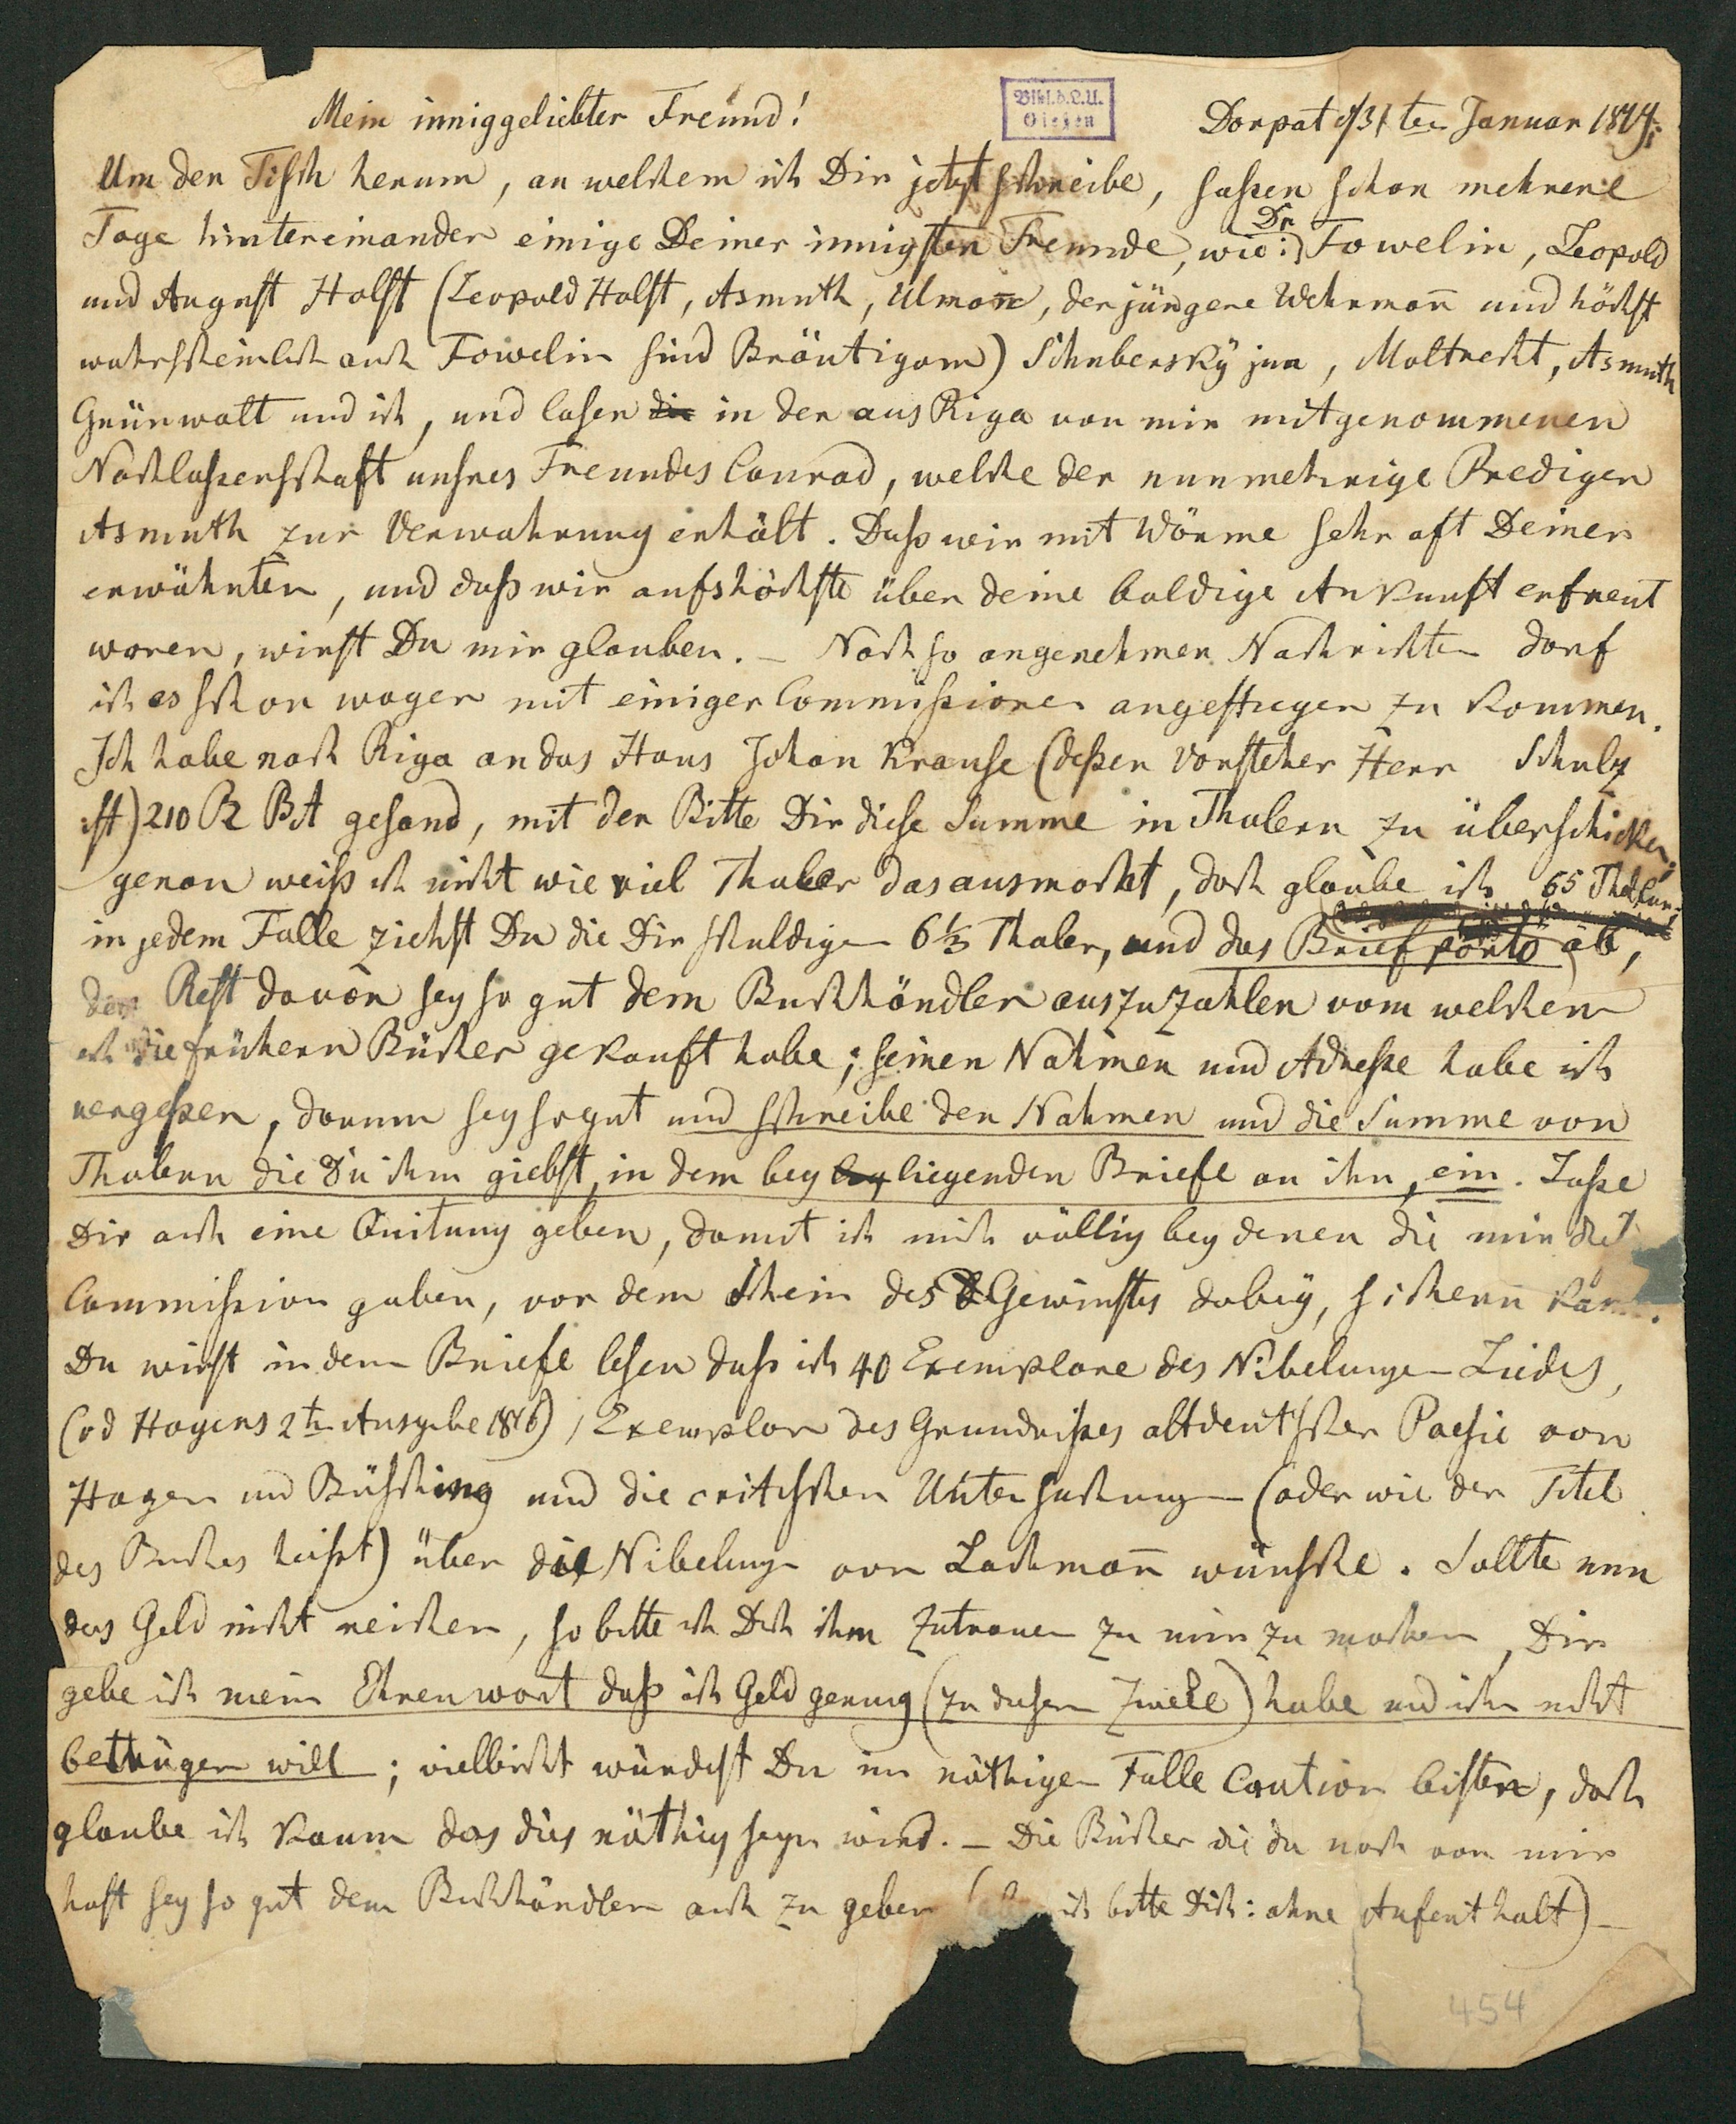 Mein inniggeliebter Freund!
Bibl.d.L.U.
Giessen
Dorpat d 31ten Januar
Um den Tisch herum, an welchem ich Dir jetzt schreibe, saßen schon mehrere
Tage hintereinander einige Deiner innigsten Freunde, wie: Dr Towelin, Leopold
und August Holst (Leopold Holst, Asmuth, Ulmañ, der jüngere Wehrmañ und höchst
wahrscheinlich auch Towelin sind Bräutigam) Schubersky jun, Moltrecht, Asmuth
Grünwalt und ich, und lasen die in der aus Riga von mir mitgenommenen
Nachlaßenschaft unsres Freundes Conrad, welche der nunmehrige Prediger
Asmuth zur Verwahrung erhält. Daß wir mit Wärme sehr oft Deiner
erwähnten, und daß wir aufs höchste über deine baldige Ankunft erfreut
waren, wirst Du mir glauben. – Nach so angenehmen Nachrichten darf
ich es schon wagen mit einigen Commißionen angestiegen zu kommen.
Ich habe nach Riga an das Haus Johan Krause (deßen Vorsteher Herr Schulz
ist) 210 R BA gesand, mit der Bitte Dir diese Summe in Thalern zu überschicken;
genau weiß ich nicht wie viel Thaler das ausmacht, doch glaube ich 65 Thaler;
in jedem Falle ziehst Du die Dir schuldigen 6⅓ Thaler, und das Briefporto ab,
den Rest davon sey so gut dem Buchhändler auszuzahlen vom welchem
ich die frühern Bücher gekauft habe; seinen Nahmen und Adreße habe ich
vergeßen, darum sey so gut und schreibe den Nahmen und die Summe von
Thalern die Du ihm giebst, in dem bey liegenden Briefe an ihn, ein. Laße
Dir auch eine Quitung geben, damit ich mich völlig bey denen die mir die
Commißion gaben, vor dem Schein des Gewinstes dabey, sichern kann.
Du wirst in dem Briefe lesen daß ich 40 Exemplare des Nibelungen Liedes,
(vd Hagens 2te Ausgabe 1816) 1 Exemplar des Grundrißes altdeutscher Poesie von
Hagen und Büsching und die critischen Untersuchungen (oder wie der Titel
des Buches heißt) über die Nibelungen von Lachmañ wünsche. Sollte nun
das Geld nicht reichen, so bitte ich Dich ihm Zutrauen zu mir zu machen, Dir
gebe ich mein Ehrenwort daß ich Geld genug (zu diesem Zwecke) habe und ihn nicht
betrügen will; vielleicht würdest Du im nöthigen Falle Caution leisten, doch
glaube ich kaum das dies nöthig seyn wird. – Die Bücher die du noch von mir
hast sey so gut dem Buchhändler auch zu geben ich bitte Dich: ohne Aufenthalt) –
454